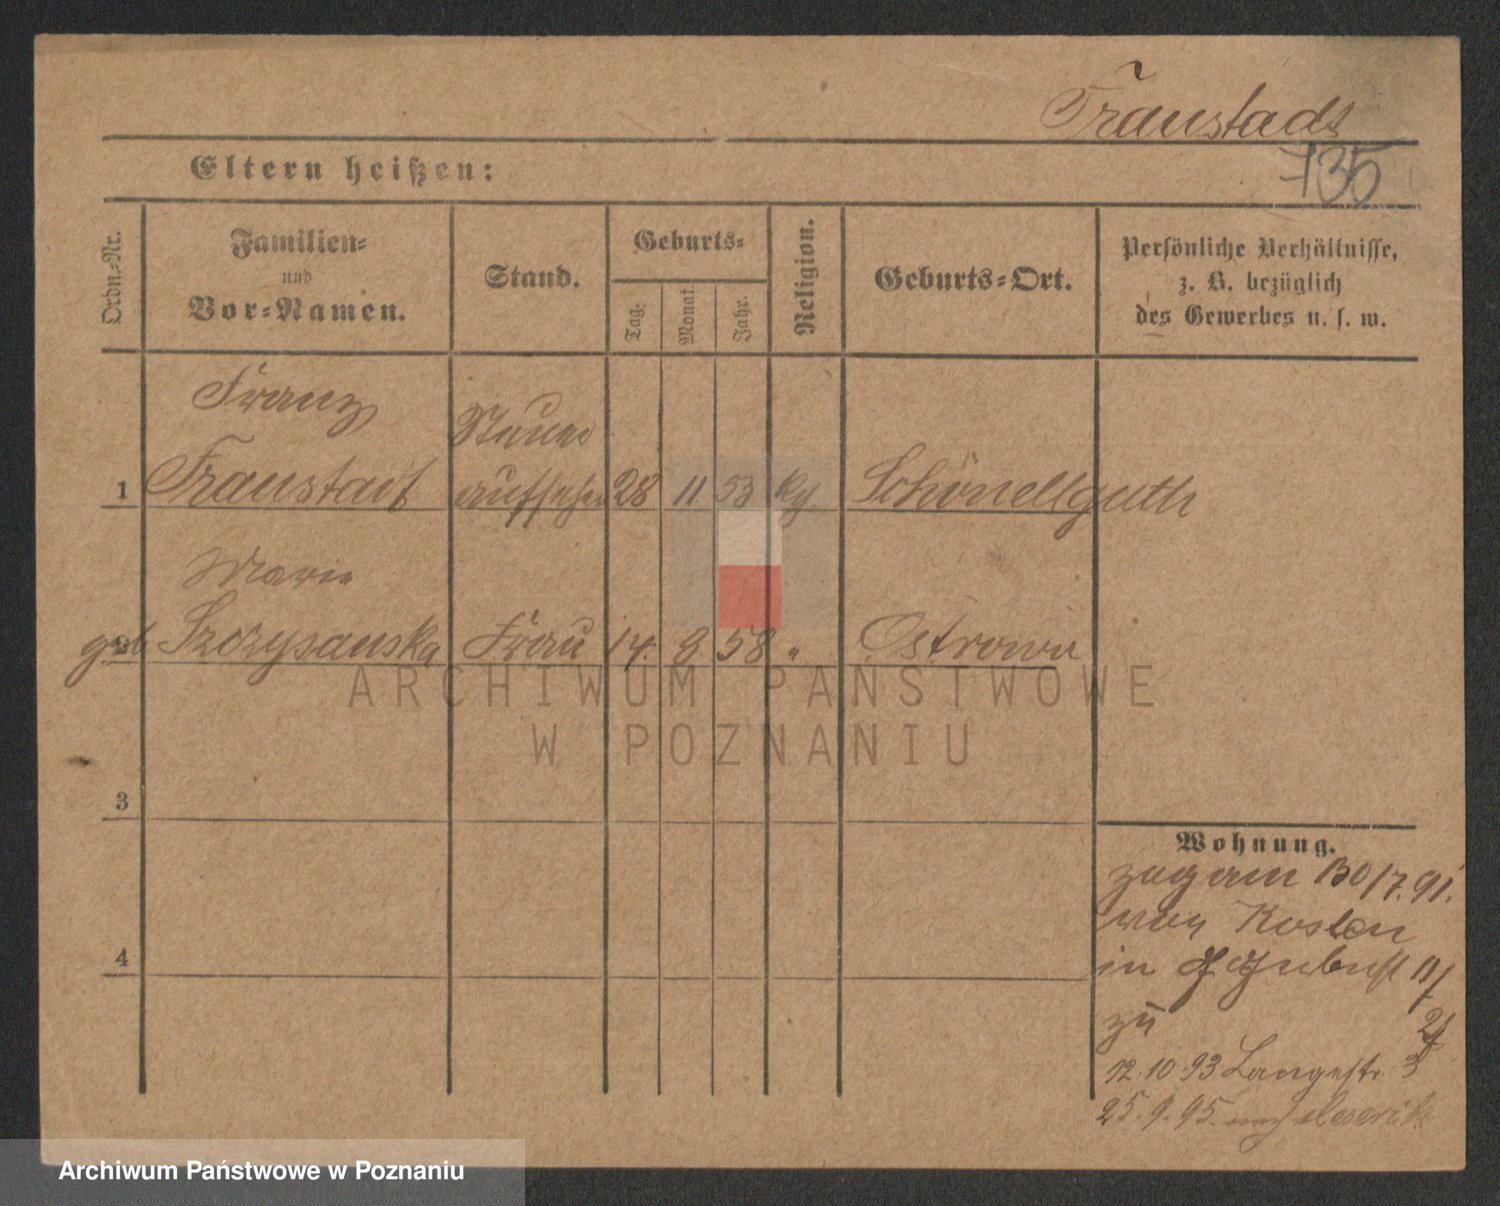 Fraustadt
735
Eltern heißen:
Ordn.-Nr.
Familien-
und
Vor-Namen.
Stand.
Geburts-
Tag.
Monat.
Jahr.
Religion.
Geburts-Ort.
Persönliche Verhältnisse,
z. B. bezüglich
des Gewerbes u. s. w.
Franz
Steuer
1 Fraustadt aufseher 28 11 53 kth
Marie
geb 2 Frau 14. 8 58 " Ostrowo
ARCHIWUM PAŃSTWOWE
W POZNANIU
3
Wohnung.
zog am 30/7. 91.
von Kosten
in
4
zu
12.10.93 Langestr. 3
25.9.95. nach Meserik
Archiwum Państwowe w Poznaniu